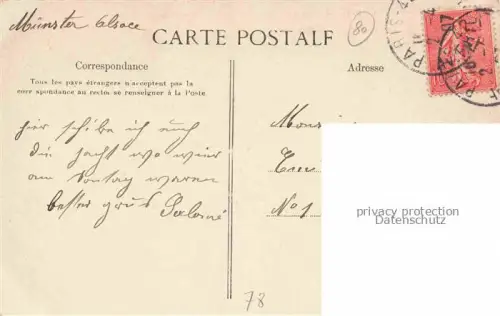 Münster Elsace
80
CARTE POSTALE
Correspondance
Tous les pays étrangers n'acceptent pas la
corr spondance au recto, se renseigner à la Poste
Adresse
hier schibe ich euch
die jacht wo wier
am Sontag waren
besser grus Salomé
Monsi
N° 1
privacy protection
Datenschutz
78
PARIS